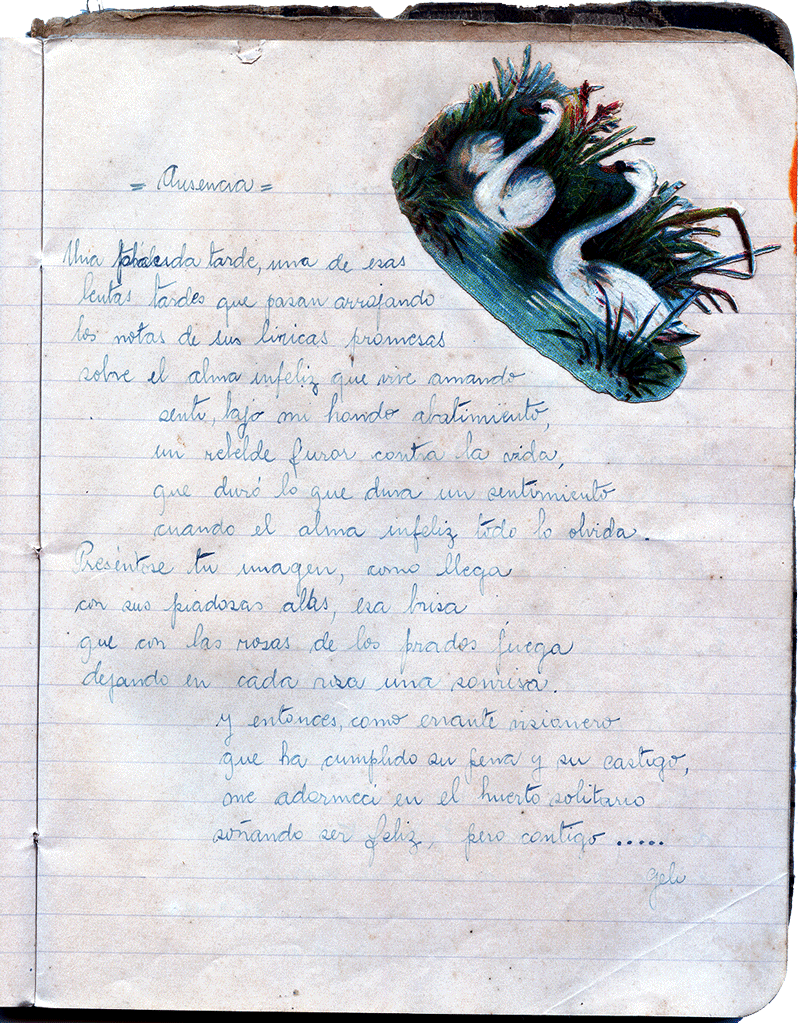 = Ausencia =
Una pálida tarde, una de esas
lentas tardes que pasan arrojando
las notas de sus liricas promesas
sobre el alma infeliz que vive amando
senti, bajo mi hondo abatimiento,
un rebelde furor contra la vida,
que duró lo que dura un sentimiento
cuando el alma infeliz todo lo olvida.
Preséntose tu imagen, como llega
con sus piadosas alas, esa brisa
que con las rosas de los prados juega
dejando en cada rosa una sonrisa.
y entonces, como errante visionero
que ha cumplido su pena y su castigo,
me adormeci en el huerto solitario
soñando ser feliz, pero contigo .....